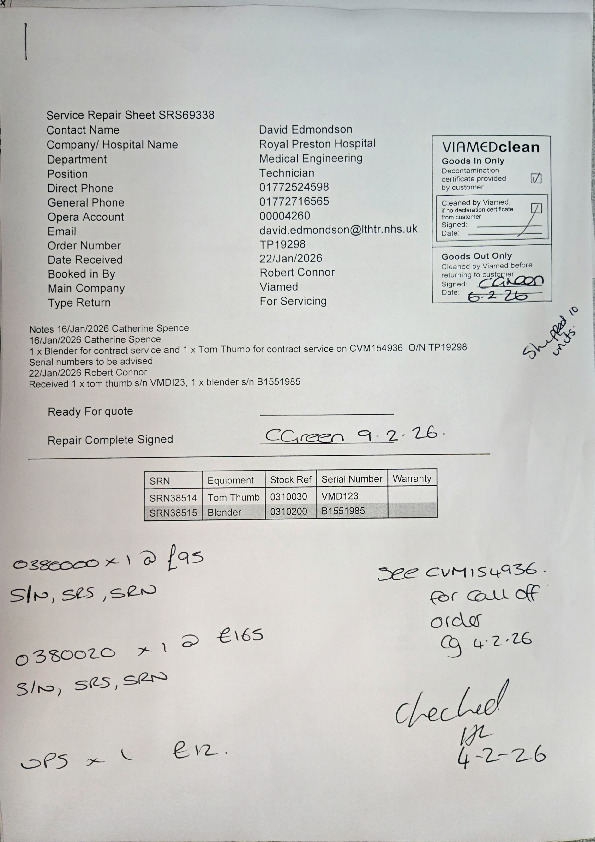 Service Repair Sheet SRS69338
Contact Name David Edmondson
Company/ Hospital Name Royal Preston Hospital
Department Medical Engineering
Position Technician
Direct Phone 01772524598
General Phone 01772716565
Opera Account 00004260
Email david.edmondson@lthtr.nhs.uk
Order Number TP19298
Date Received 22/Jan/2026
Booked in By Robert Connor
Main Company Viamed
Type Return For Servicing
VIAMEDclean
Goods In Only
Decontamination
certificate provided
by customer
Cleaned by Viamed
if no declaration certificate
from customer
Signed:
Date:
Goods Out Only
Cleaned by Viamed before
returning to customer
Signed: CGreen
Date: 6.2.26
Shipped 10
units
Notes 16/Jan/2026 Catherine Spence
16/Jan/2026 Catherine Spence
1 x Blender for contract service and 1 x Tom Thumb for contract service on CVM154936 O/N TP19298
Serial numbers to be advised
22/Jan/2026 Robert Connor
Received 1 x tom thumb s/n VMDI23, 1 x blender s/n B1551985
Ready For quote
Repair Complete Signed CGreen 9.2.26.
SRN Equipment Stock Ref Serial Number Warranty
SRN38514 Tom Thumb 0310030 VMD123
SRN38515 Blender 0310200 B1551985
0380000 x 1 @ £95
S/N, SRS, SRN
0380020 x 1 @ £165
S/N, SRS, SRN
UPS x 1 £12.
See CVM154936.
for call off
order
cg 4.2.26
Checked
4-2-26